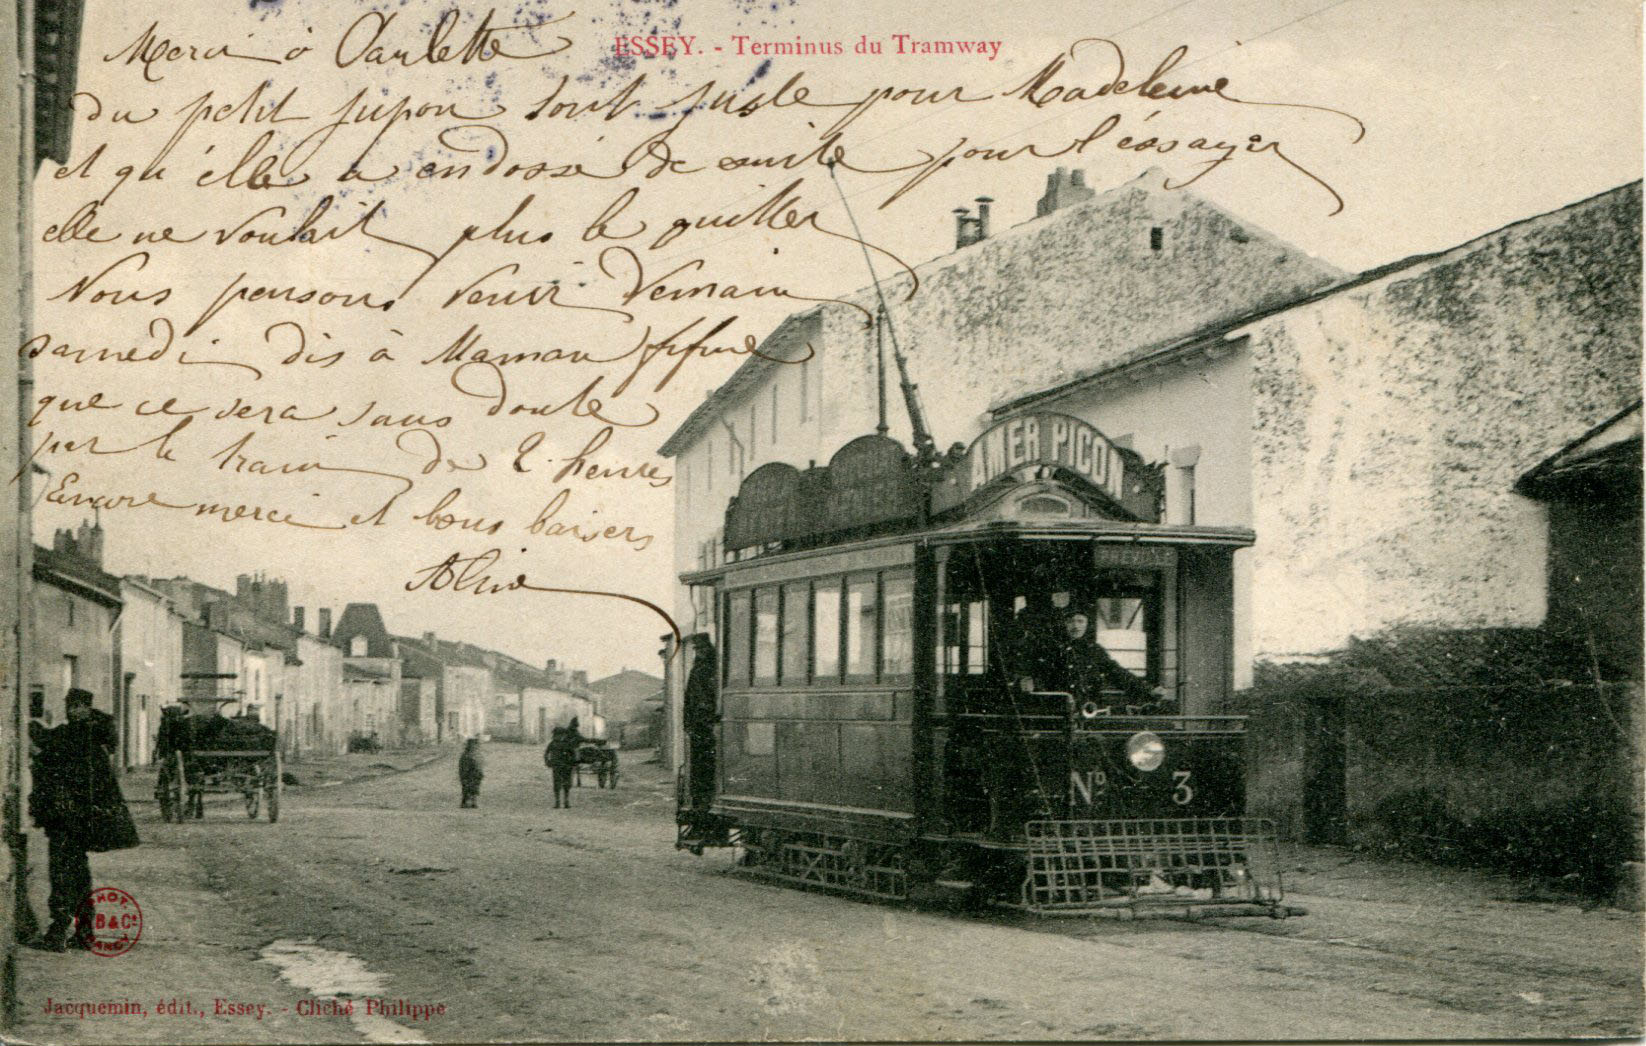 ESSEY. - Terminus du Tramway
Merci à Paulette
du petit jupon tout juste pour Madeleine
et qu'elle a endossé de suite pour l'éssayer
elle ne voulait plus le quitter
Nous pensons venir demain
samedi dis à Maman fifine
que ce sera sans doute
par le train de 2 heures
Encore merci et bons baisers
Aline
AMER PICON
Nº 3
PHOT.
B & Cie
NANCY
Jacquemin, édit., Essey. - Cliché Philippe